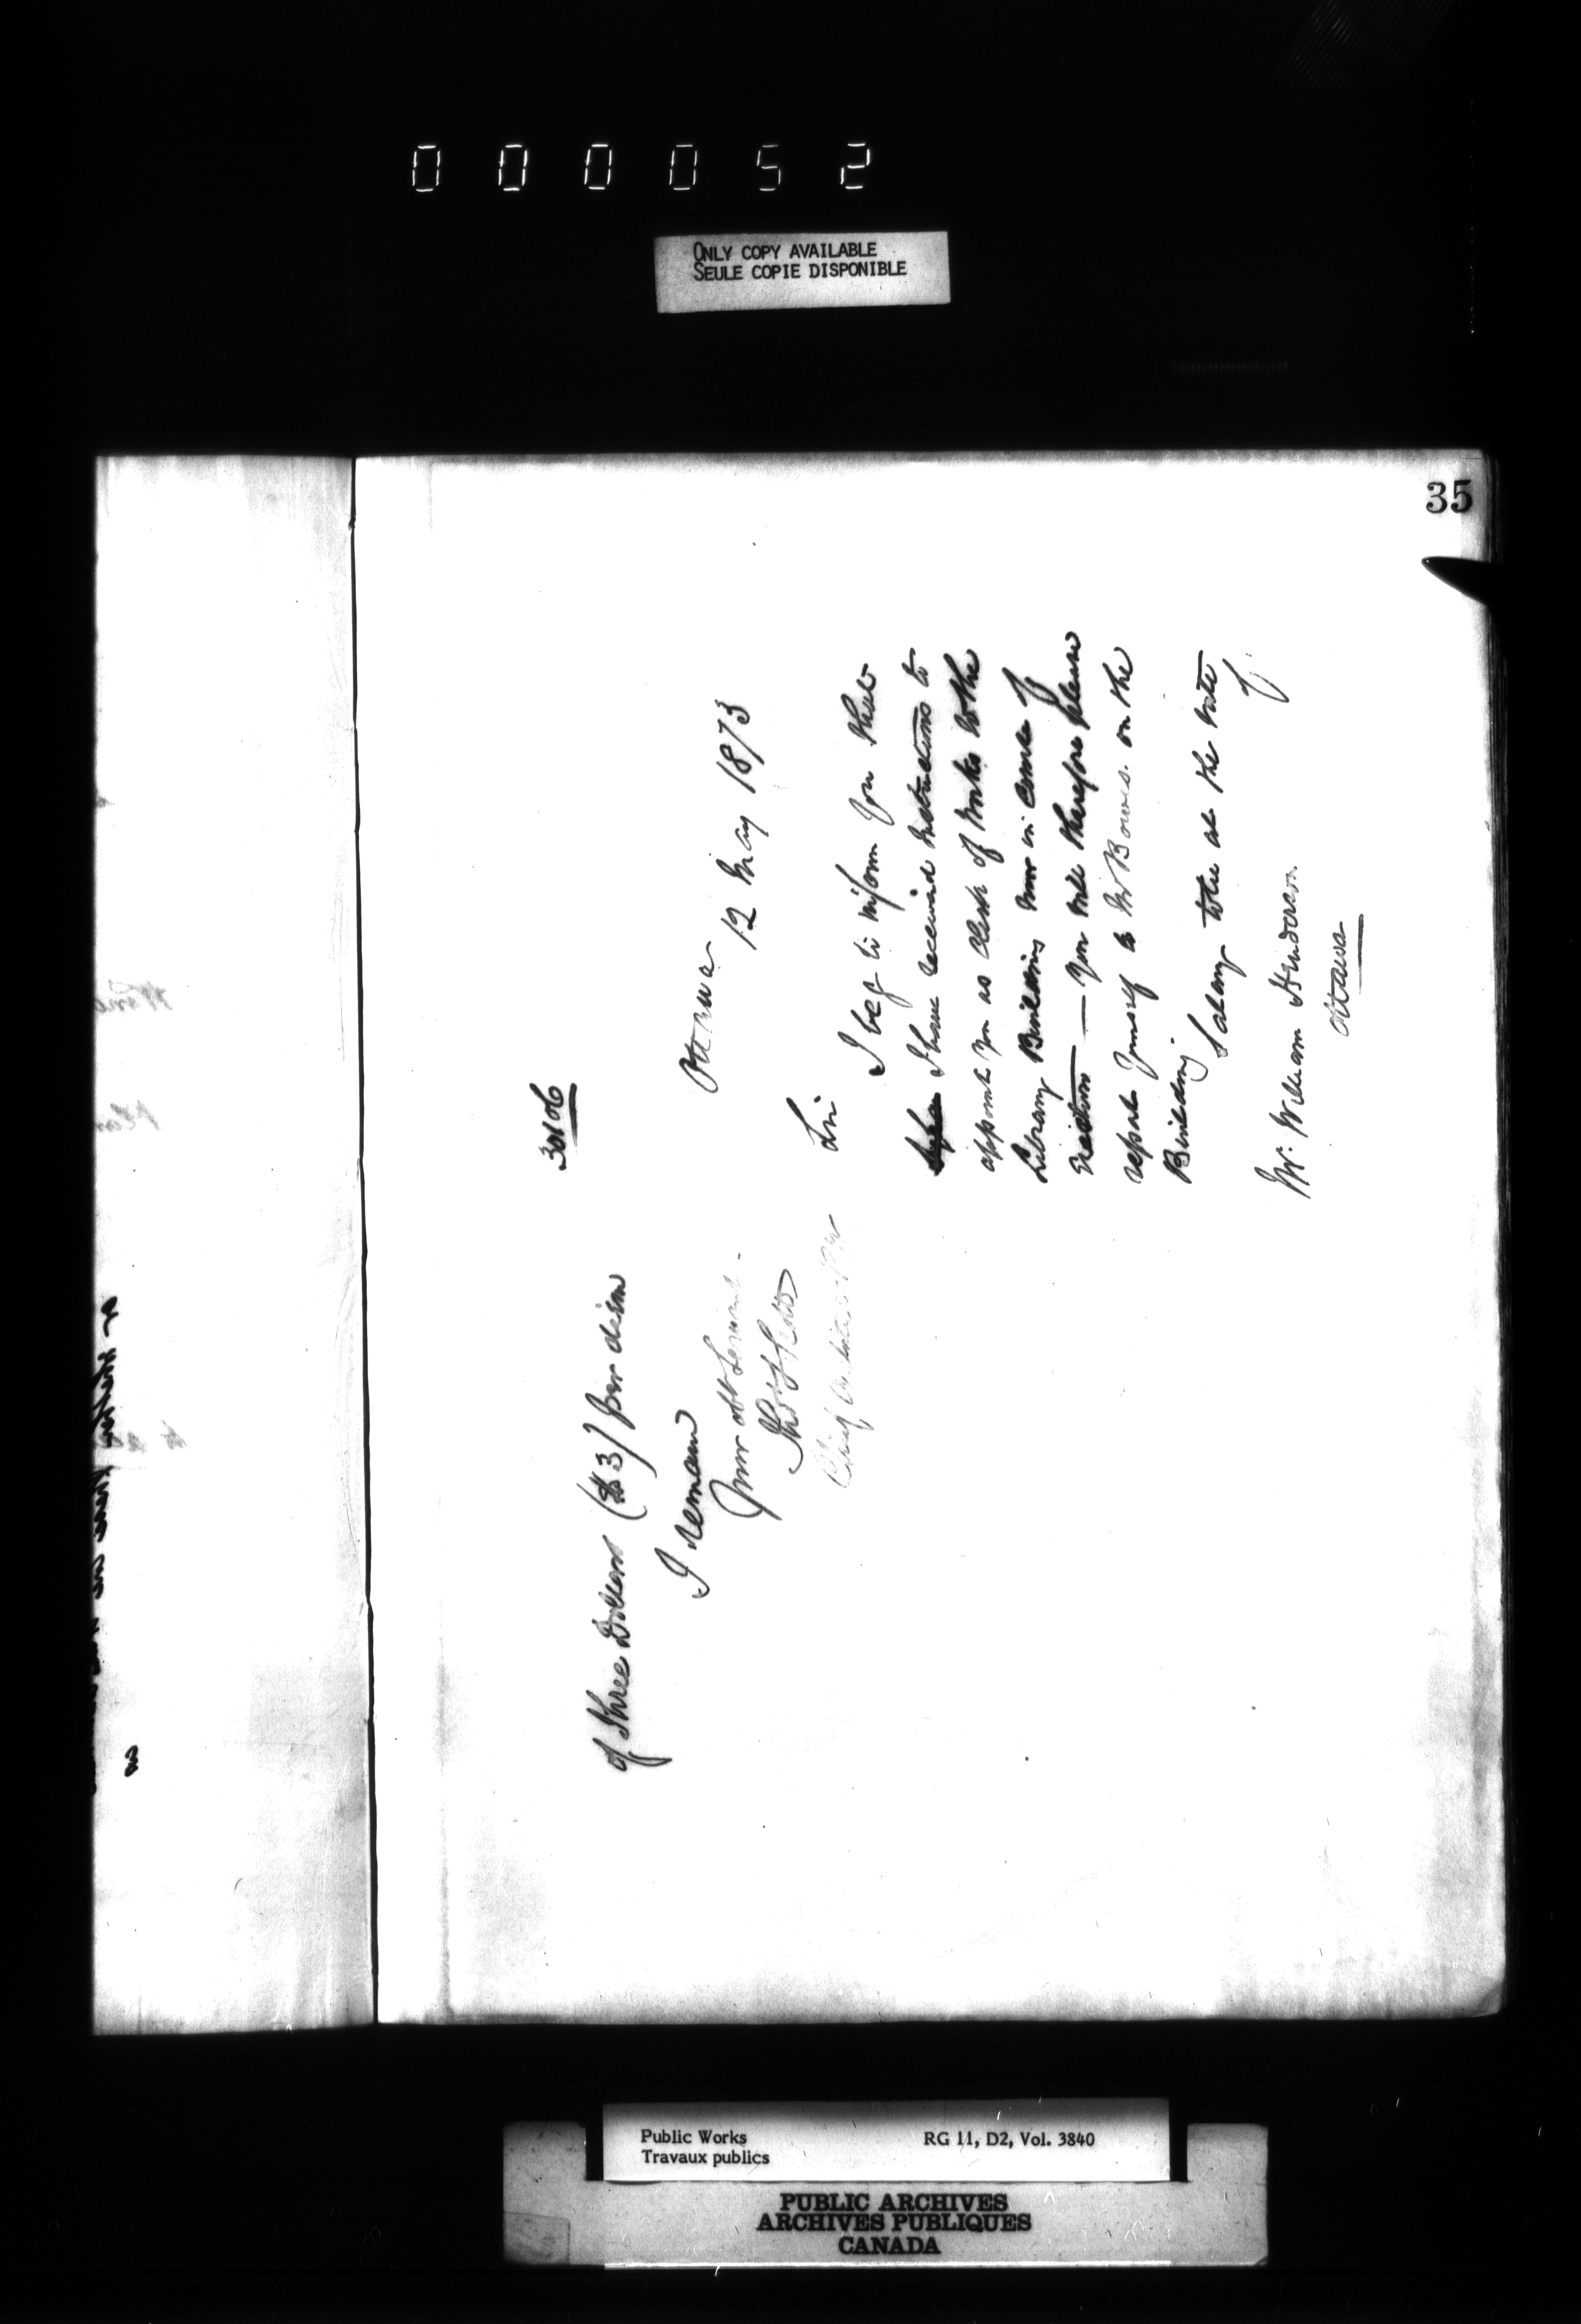 000052
ONLY COPY AVAILABLE
SEULE COPIE DISPONIBLE
35
30106
Ottawa
12 May 1873
Sir
I beg to inform you that
I have received instructions to
appoint you as Clerk of Works to the
Library Building now in course of
erection — you will therefore please
report yourself to Mr Bowes. on the
Building.
Salary to be at the rate
of
Mr. William Henderson
Ottawa
of three Dollars ($3) per diem
I remain
your obt Servant.
Thos S Scott
Chief Architect P W
Public Works
Travaux publics
RG 11, D2, Vol. 3840
PUBLIC ARCHIVES
ARCHIVES PUBLIQUES
CANADA